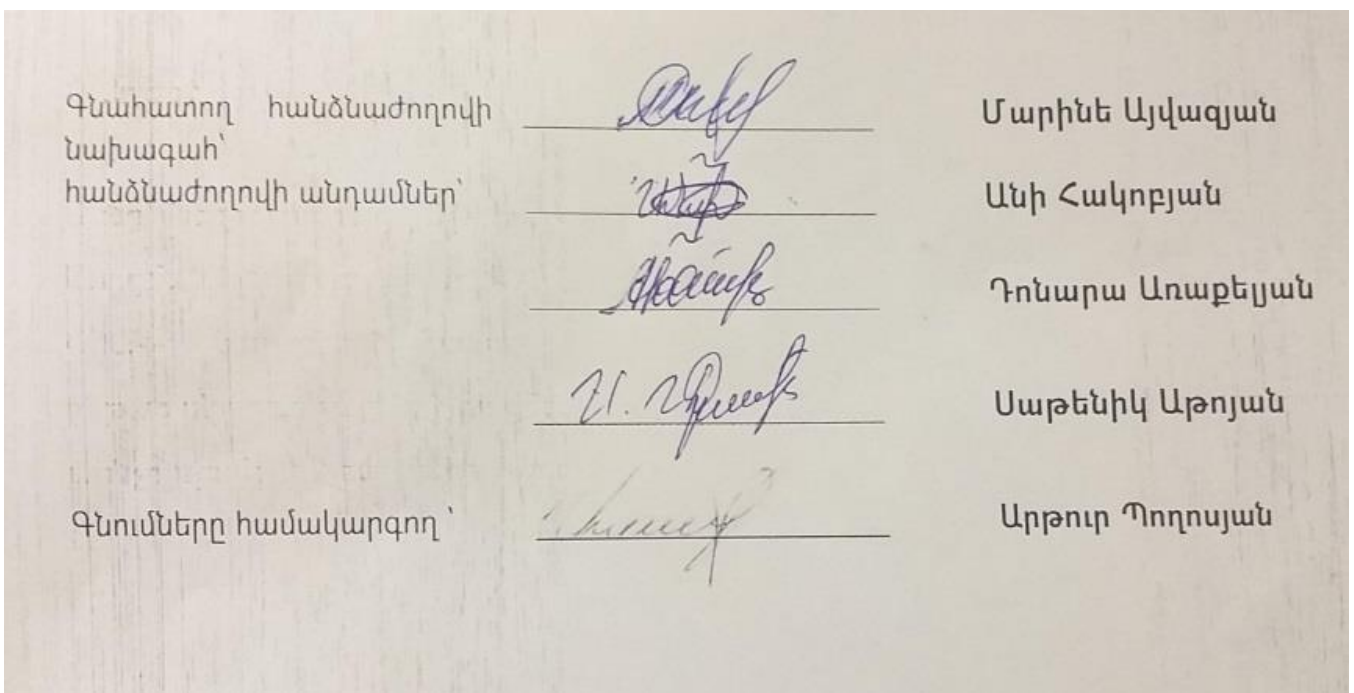 Գնահատող հանձնաժողովի Մարինե Այվազյան
նախագահ՝
հանձնաժողովի անդամներ՝ Անի Հակոբյան
Դոնարա Առաքելյան
Սաթենիկ Աթոյան
Գնումները համակարգող ՝ Արթուր Պողոսյան